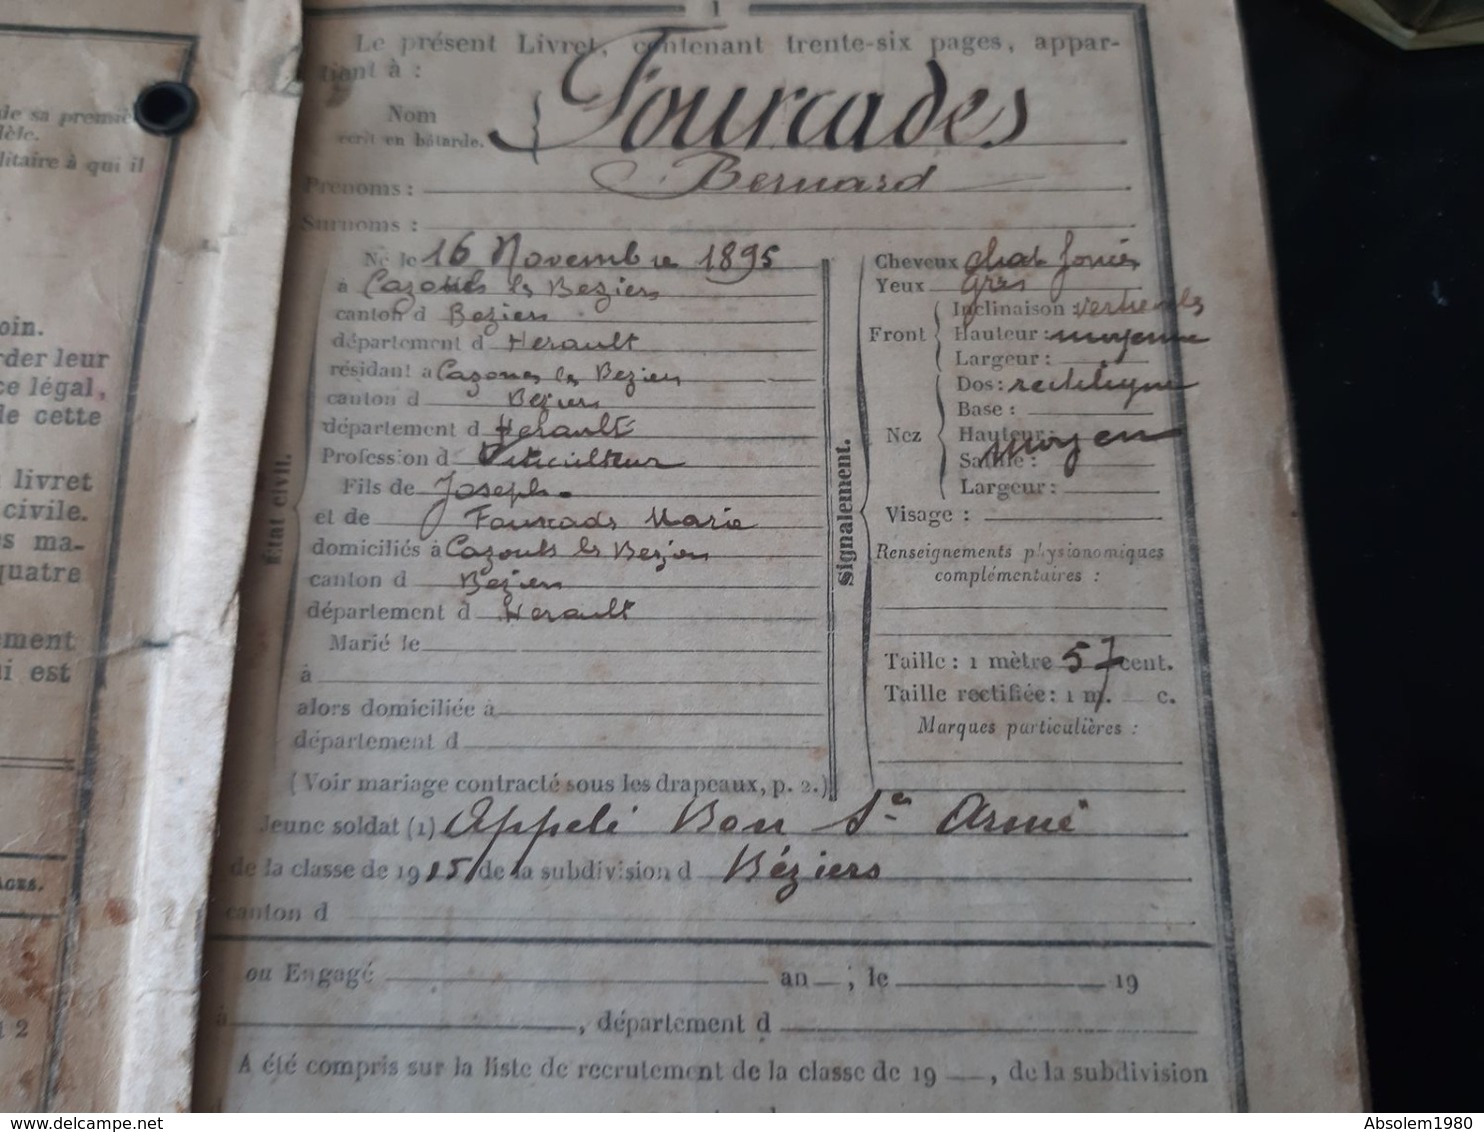 1
Le présent Livret, contenant trente-six pages, appar-
tient à :
Nom
écrit en bâtarde.
Fourcades
Prénoms : Bernard
Surnoms :
État civil.
Né le 16 Novembre 1895
à Cazouls les Beziers
canton d Beziers
département d Herault
résidant à Cazouls les Beziers
canton d Beziers
département d Herault
Profession d Viticulteur
Fils de Joseph
et de Fourcads Marie
domiciliés à Cazouls les Beziers
canton d Beziers
département d Herault
Marié le
à
alors domiciliée à
département d
(Voir mariage contracté sous les drapeaux, p. 2.)
Signalement.
Cheveux chat foncés
Yeux gris
Front
Inclinaison verticale
Hauteur : moyenne
Largeur :
Nez
Dos : rectiligne
Base :
Hauteur : moyen
Saillie :
Largeur :
Visage :
Renseignements physionomiques
complémentaires :
Taille : 1 mètre 57 cent.
Taille rectifiée : 1 m. c.
Marques particulières :
Jeune soldat (1) Appelé Bon Sce Armé
de la classe de 1915 de la subdivision d Béziers
canton d
ou Engagé an , le 19
à , département d
A été compris sur la liste de recrutement de la classe de 19 , de la subdivision
de sa premiè
litaire à qui il
oin.
rder leur
ce légal,
de cette
livret
civile.
es ma-
quatre
ement
ui est
AGES.
12
delcampe.net
Absolem1980